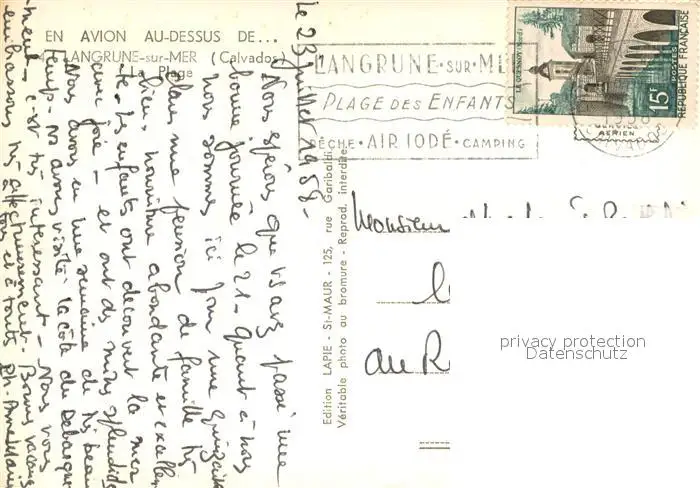 EN AVION AU-DESSUS DE...
LANGRUNE-sur-MER (Calvados)
La Plage
LANGRUNE·SUR·MER
PLAGE DES ENFANTS
PÊCHE·AIR IODÉ·CAMPING
LE QUESNOY (Nord)
POSTES
15F
RÉPUBLIQUE FRANÇAISE
AÉRIEN
Le 23 Juillet 1958-
Nous espérons que vs avez passé une
bonne journée le 21 - Quant à nous
nous sommes ici pour une quinzaine
dans une pension de famille très
bien, nourriture abondante et excellen
te. Les enfants ont découvert la mer
avec joie - et ont des mines splendides
Nous avons eu une semaine de très beau
temps - ns avons visité la côte du Débarque
ment - c'est très intéressant - Nous vous
embrassons très affectueusement. Bonnes vacances
à tous et à toutes
Edition LAPIE - St-MAUR - 125, rue Garibaldi
Véritable photo au bromure - Reprod. interdite
Monsieur
au R
privacy protection
Datenschutz